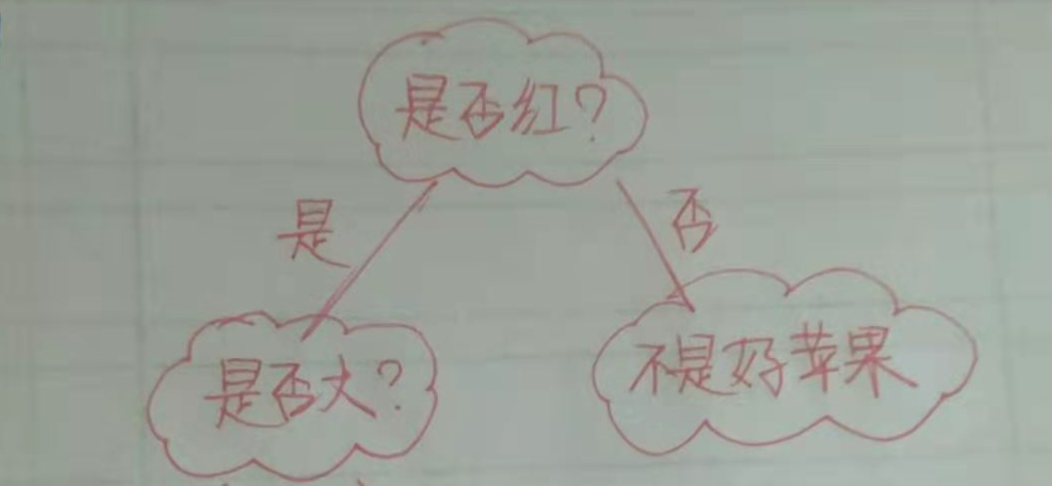 是否红?
是
否
是否大?
不是好苹果